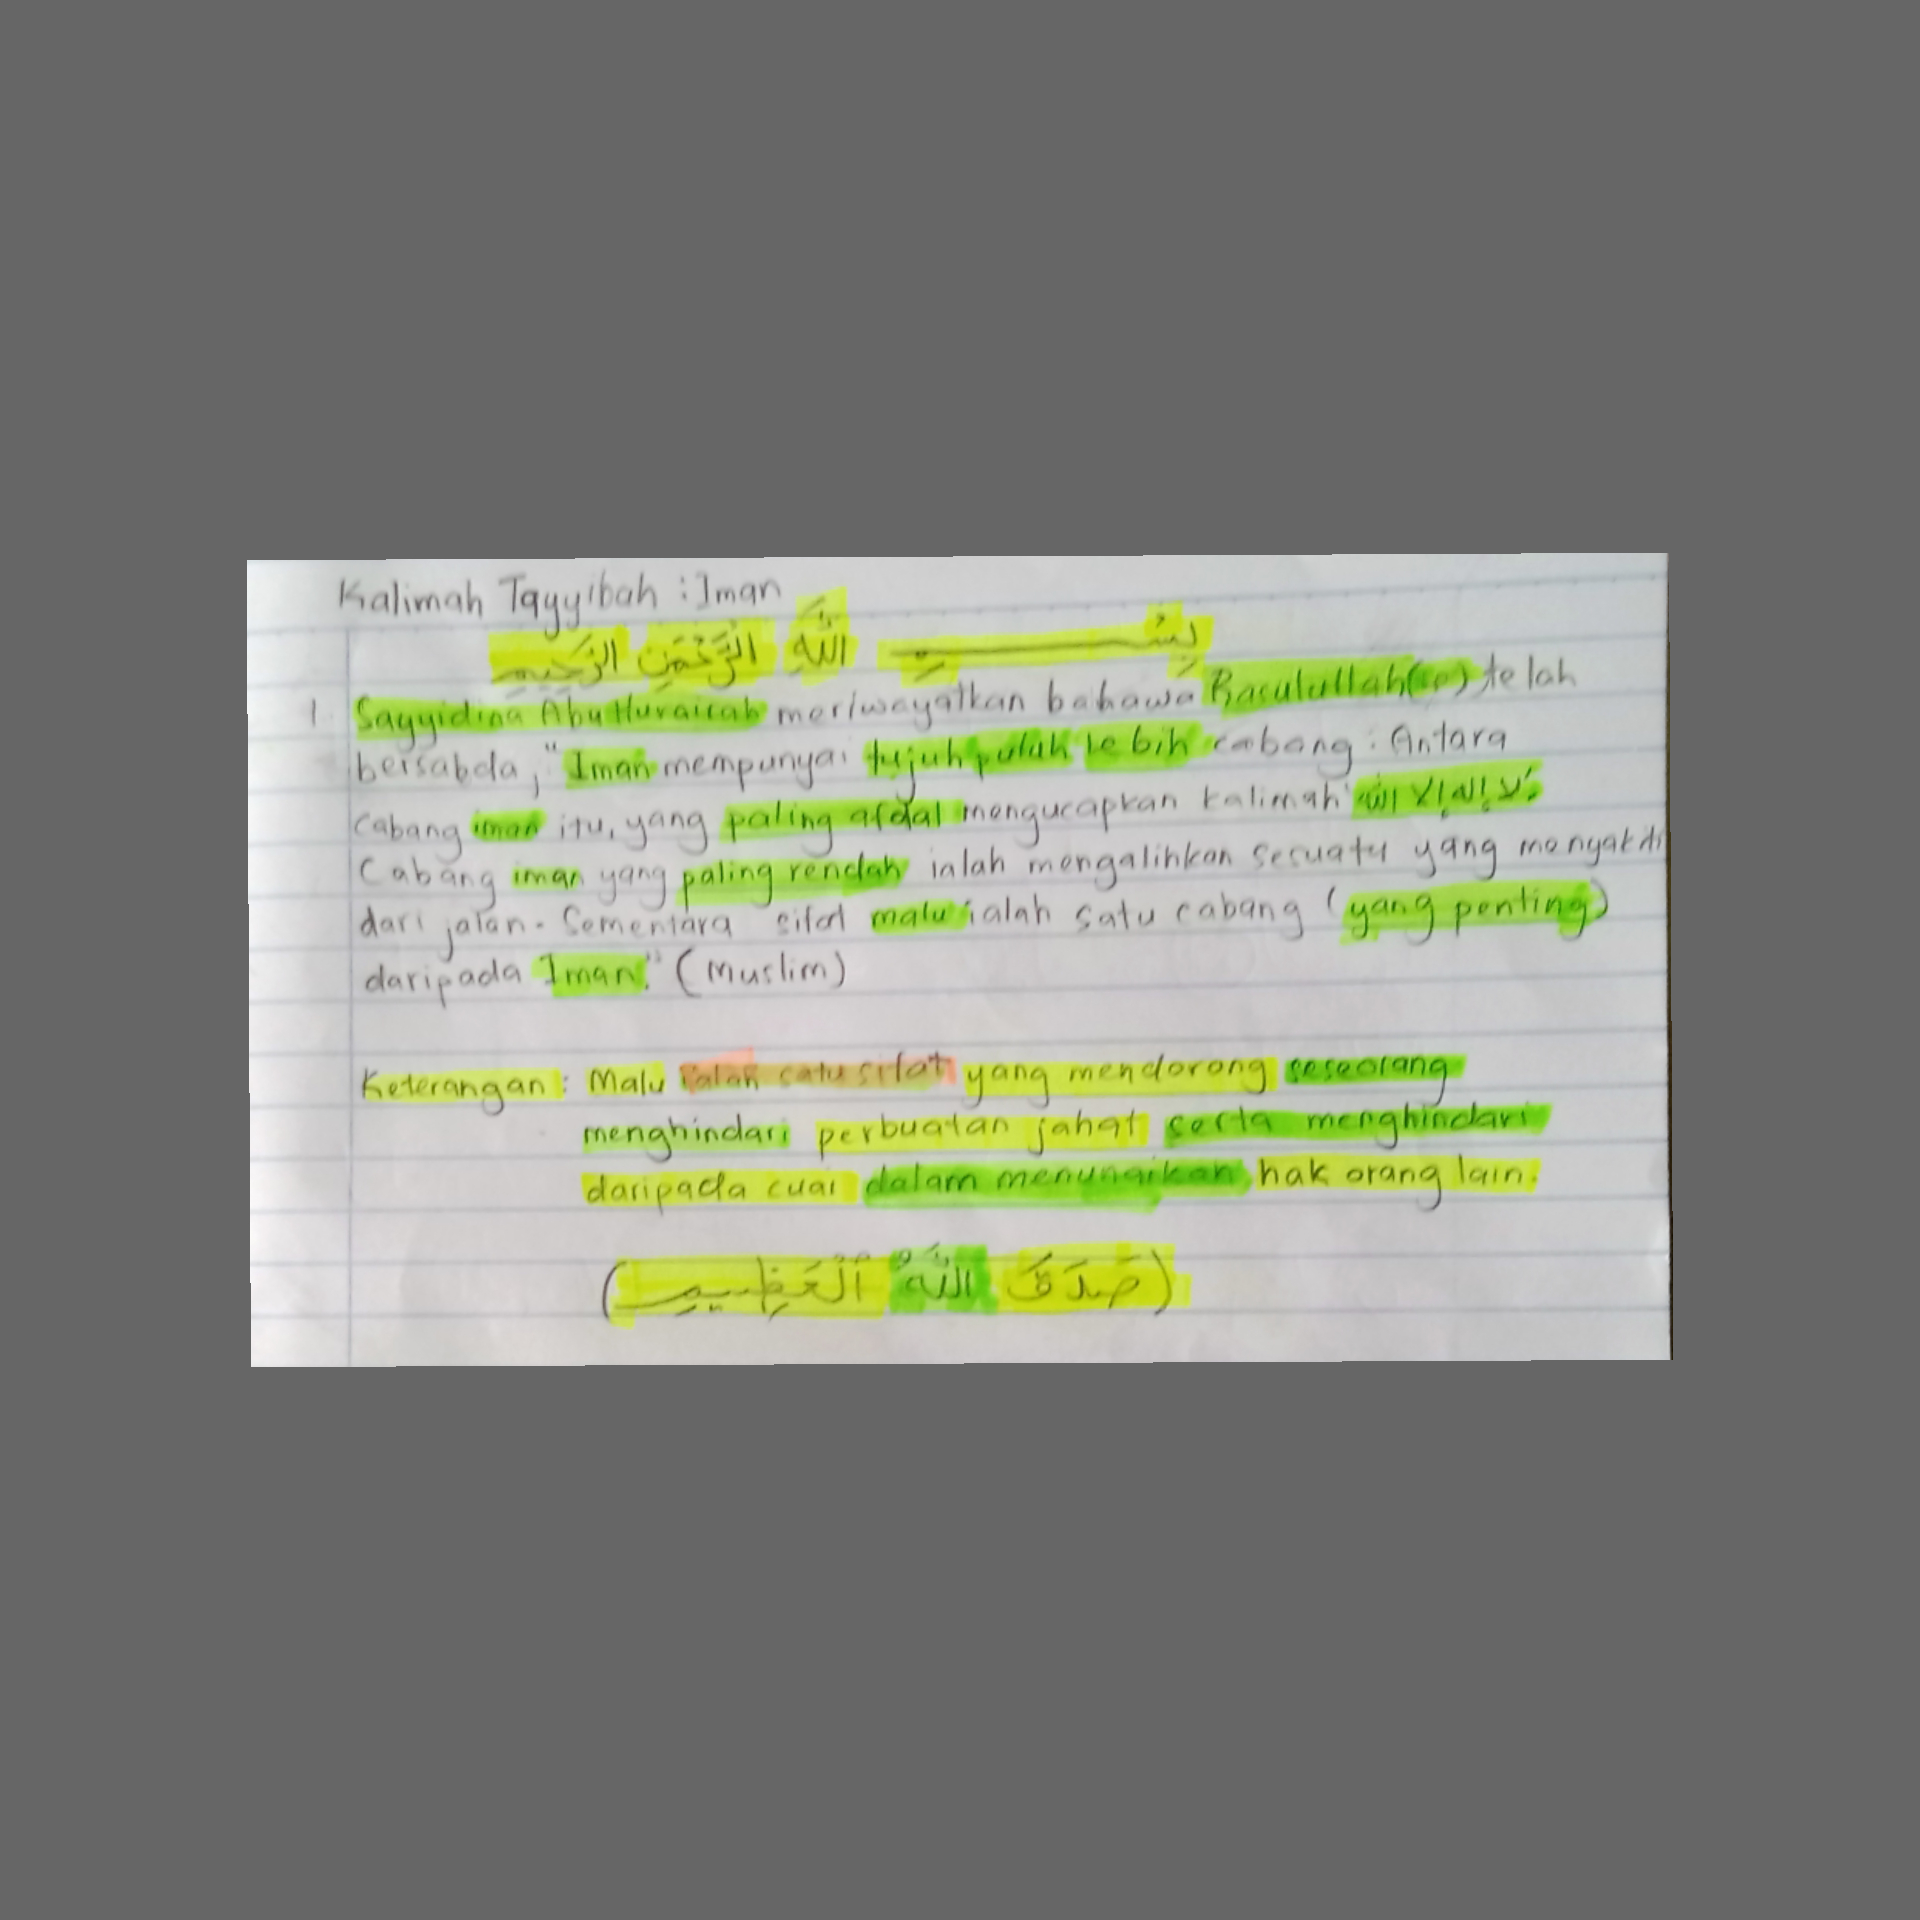 Kalimah Tayyibah : Iman
بِسْــــــــمِ اللَّهِ الرَّحْمَنِ الرَّحِيمِ
1. Sayyidina Abu Hurairah meriwayatkan bahawa Rasulullah telah
bersabda, "Iman mempunyai tujuh puluh lebih cabang. Antara
cabang iman itu, yang paling afdal mengucapkan kalimah لا إله إلا الله.
Cabang iman yang paling rendah ialah mengalihkan sesuatu yang menyakiti
dari jalan. Sementara sifat malu ialah satu cabang (yang penting)
daripada Iman." (Muslim)
Keterangan : Malu ialah satu sifat yang mendorong seseorang
menghindari perbuatan jahat serta menghindari
daripada cuai dalam menunaikan hak orang lain.
(صَدَقَ اللَّهُ الْعَظِيمِ)